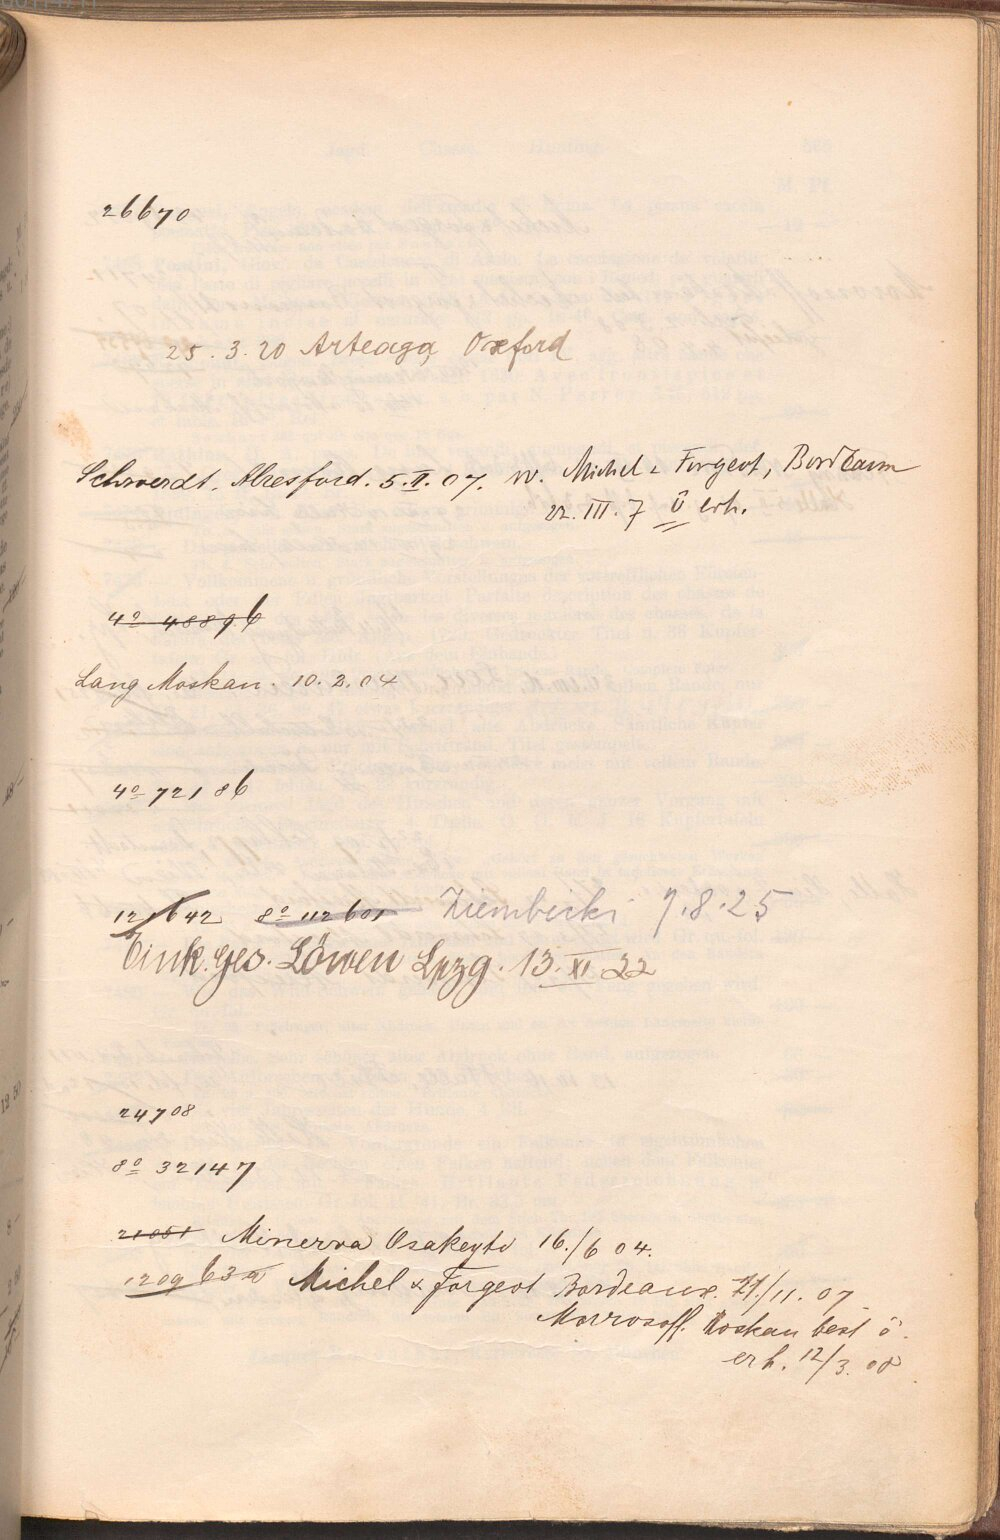 26670
25.3.20 Arteaga Oxford
Schwerdt, Alresford. 5.II.07. w. Michel & Forgeot, Bordeaux
22.III.7 ö erh.
4o 48896
Lang Moskau. 10.2.04
4o 72186
121642 8o 112601 Ziembicki 7.8.25
Eink.ges. Löwen Lpzg. 13.XI 22
24708
8o 32147
21051 Minerva Osakeyti 16./6 04.
120963a Michel & Forgeot Bordeaux. 21./11.07
Morrosoff. Moskau best ö.
erh. 12/3.08